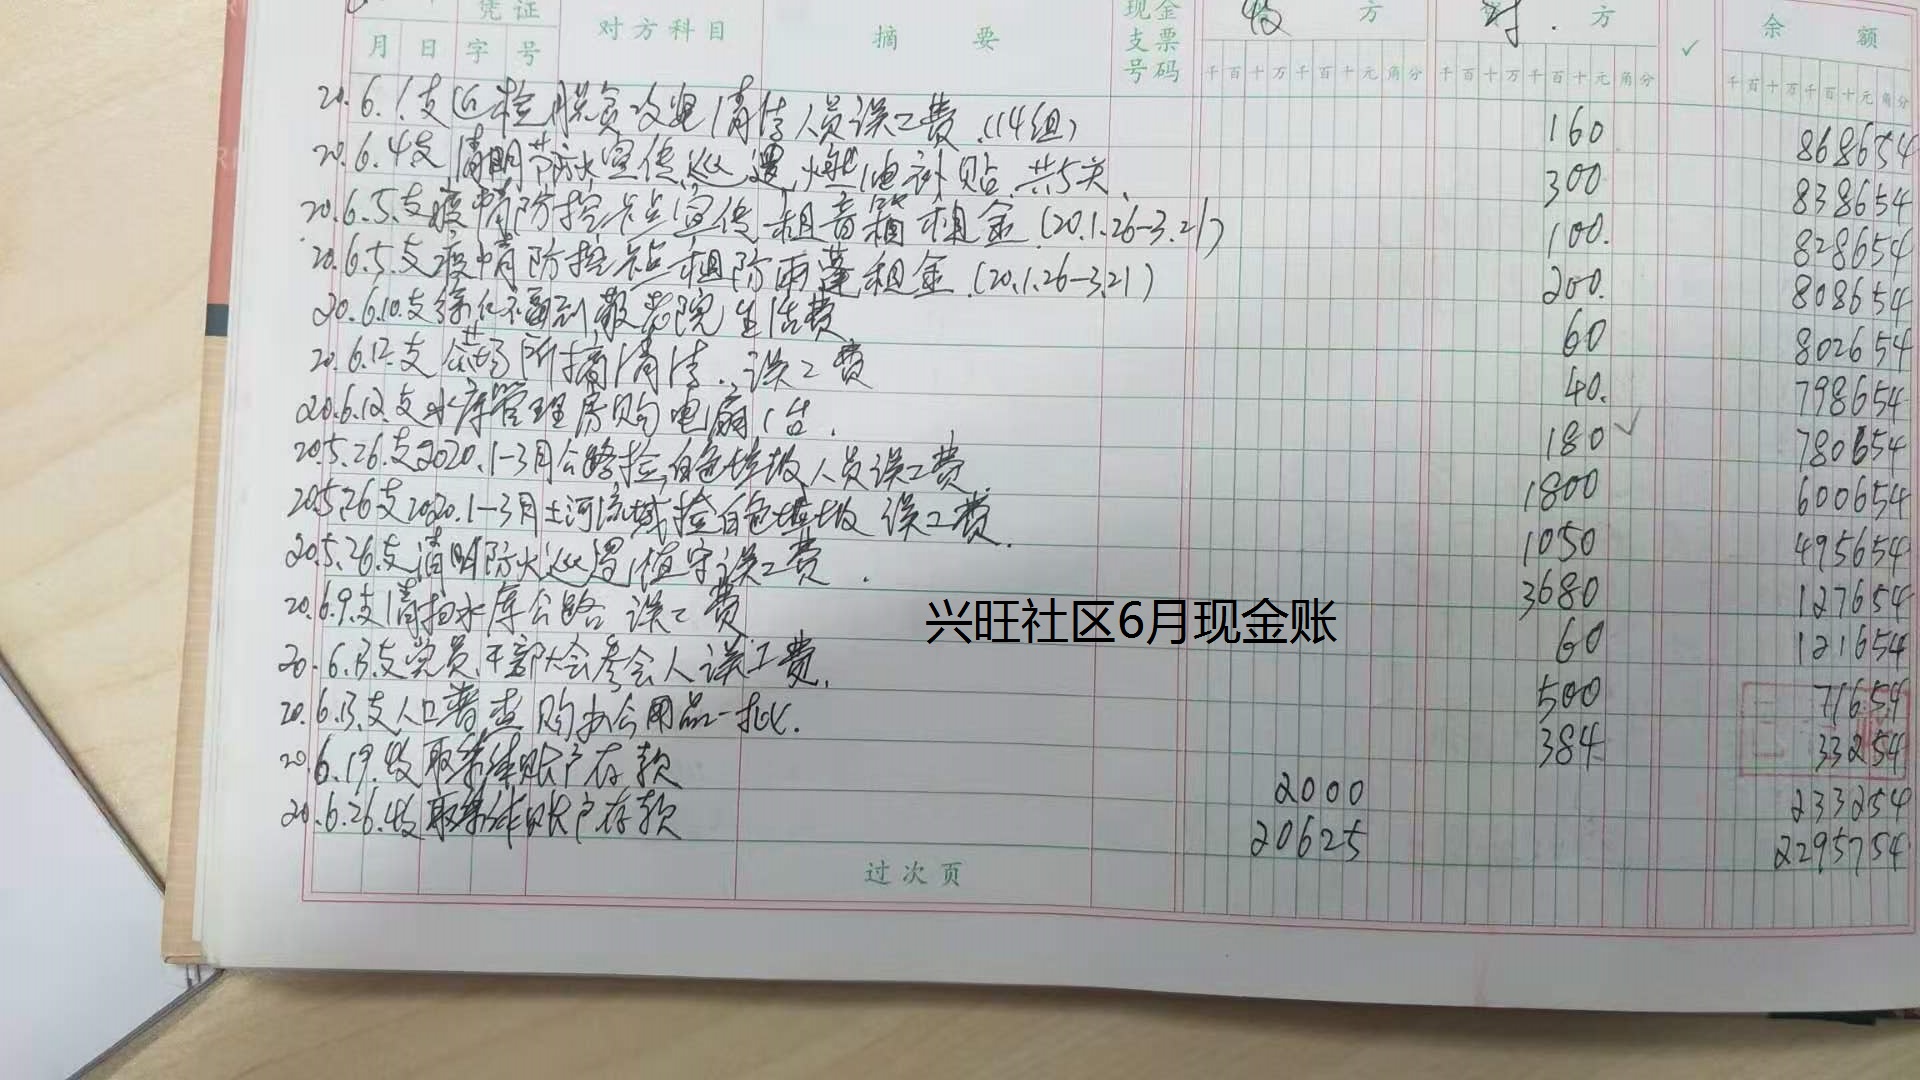 凭证 对方科目 摘要 现金支票号码 收方 付.方 ✓ 余额
月 日 字 号 千百十万千百十元角分 千百十万千百十元角分 千百十万千百十元角分
20.6.1支 检脱贫攻坚清洁人员误工费.(14组) 160 868654
20.6.4支清明节防火宣传巡逻燃油补贴.共5天. 300 838654
20.6.5.支疫情防控卡点宣传租音箱租金.(20.1.26-3.21) 100. 828654
20.6.5.支疫情防控卡点租防雨蓬租金.(20.1.26-3.21) 200. 808654
20.6.10.支 敬老院生活费 60 802654
20.6.12.支 清洁.误工费 40. 798654
20.6.12.支水库管理房购电扇1台. 180 ✓ 780654
20.5.26.支2020.1-3月公路捡白色垃圾人员误工费 1800 600654
20.5.26支2020.1-3月土河流域捡白色垃圾误工费. 1050 495654
20.5.26.支清明防火巡逻值守误工费. 3680 127654
20.6.9.支清扫水库公路误工费 60 121654
20.6.13.支党员.干部大会参会人误工费. 500 71654
20.6.13.支人口普查购办公用品一批. 384 33254
20.6.19.收取集体账户存款 2000 233254
20.6.26.收取集体账户存款 20625 2295754
过次页
兴旺社区6月现金账